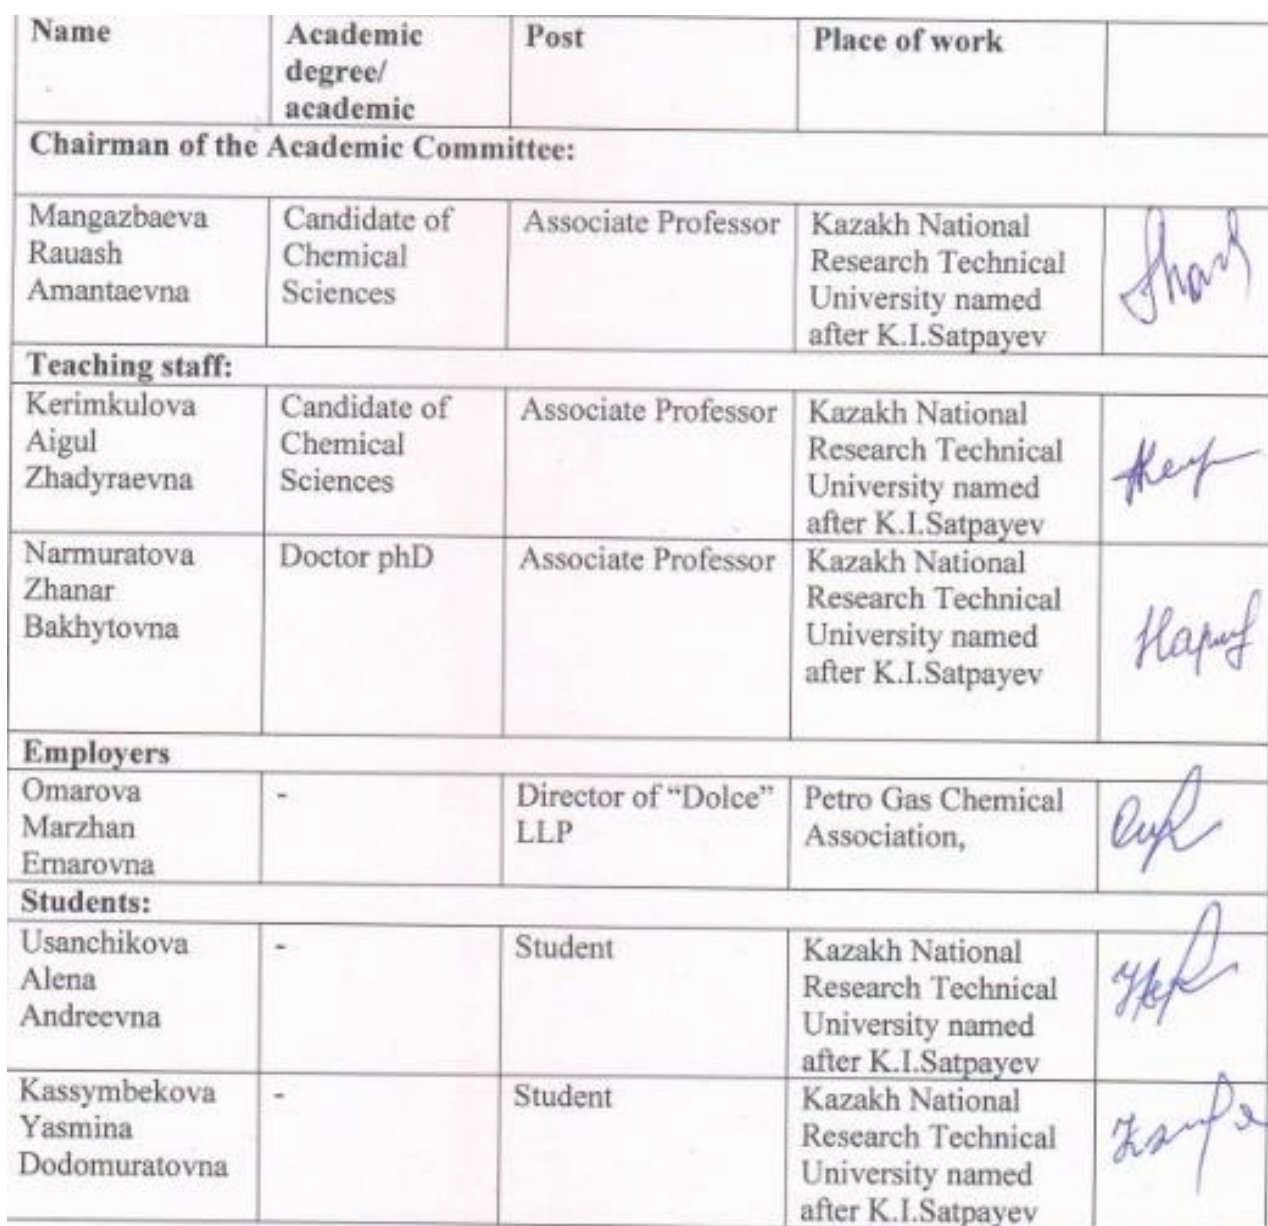 Name Academic degree/ academic Post Place of work
Chairman of the Academic Committee:
Mangazbaeva Rauash Amantaevna Candidate of Chemical Sciences Associate Professor Kazakh National Research Technical University named after K.I.Satpayev
Teaching staff:
Kerimkulova Aigul Zhadyraevna Candidate of Chemical Sciences Associate Professor Kazakh National Research Technical University named after K.I.Satpayev
Narmuratova Zhanar Bakhytovna Doctor phD Associate Professor Kazakh National Research Technical University named after K.I.Satpayev
Employers
Omarova Marzhan Ernarovna - Director of “Dolce” LLP Petro Gas Chemical Association,
Students:
Usanchikova Alena Andreevna - Student Kazakh National Research Technical University named after K.I.Satpayev
Kassymbekova Yasmina Dodomuratovna - Student Kazakh National Research Technical University named after K.I.Satpayev